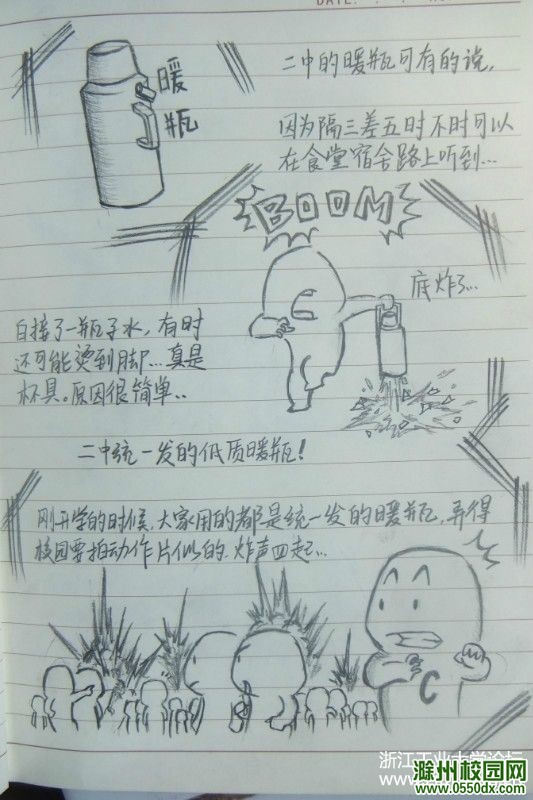 DATE:
暖
瓶
二中的暖瓶可有的说,
因为隔三差五时不时可以
在食堂宿舍路上听到...
BOOM
底炸了...
白接了一瓶子水,有时
还可能烫到脚...真是
杯具。原因很简单..
二中统一发的低质暖瓶!
刚开学的时候,大家用的都是统一发的暖瓶,弄得
校园要拍动作片似的,炸声四起...
C
浙江工业大学论坛
滁州校园网
www.0550dx.com